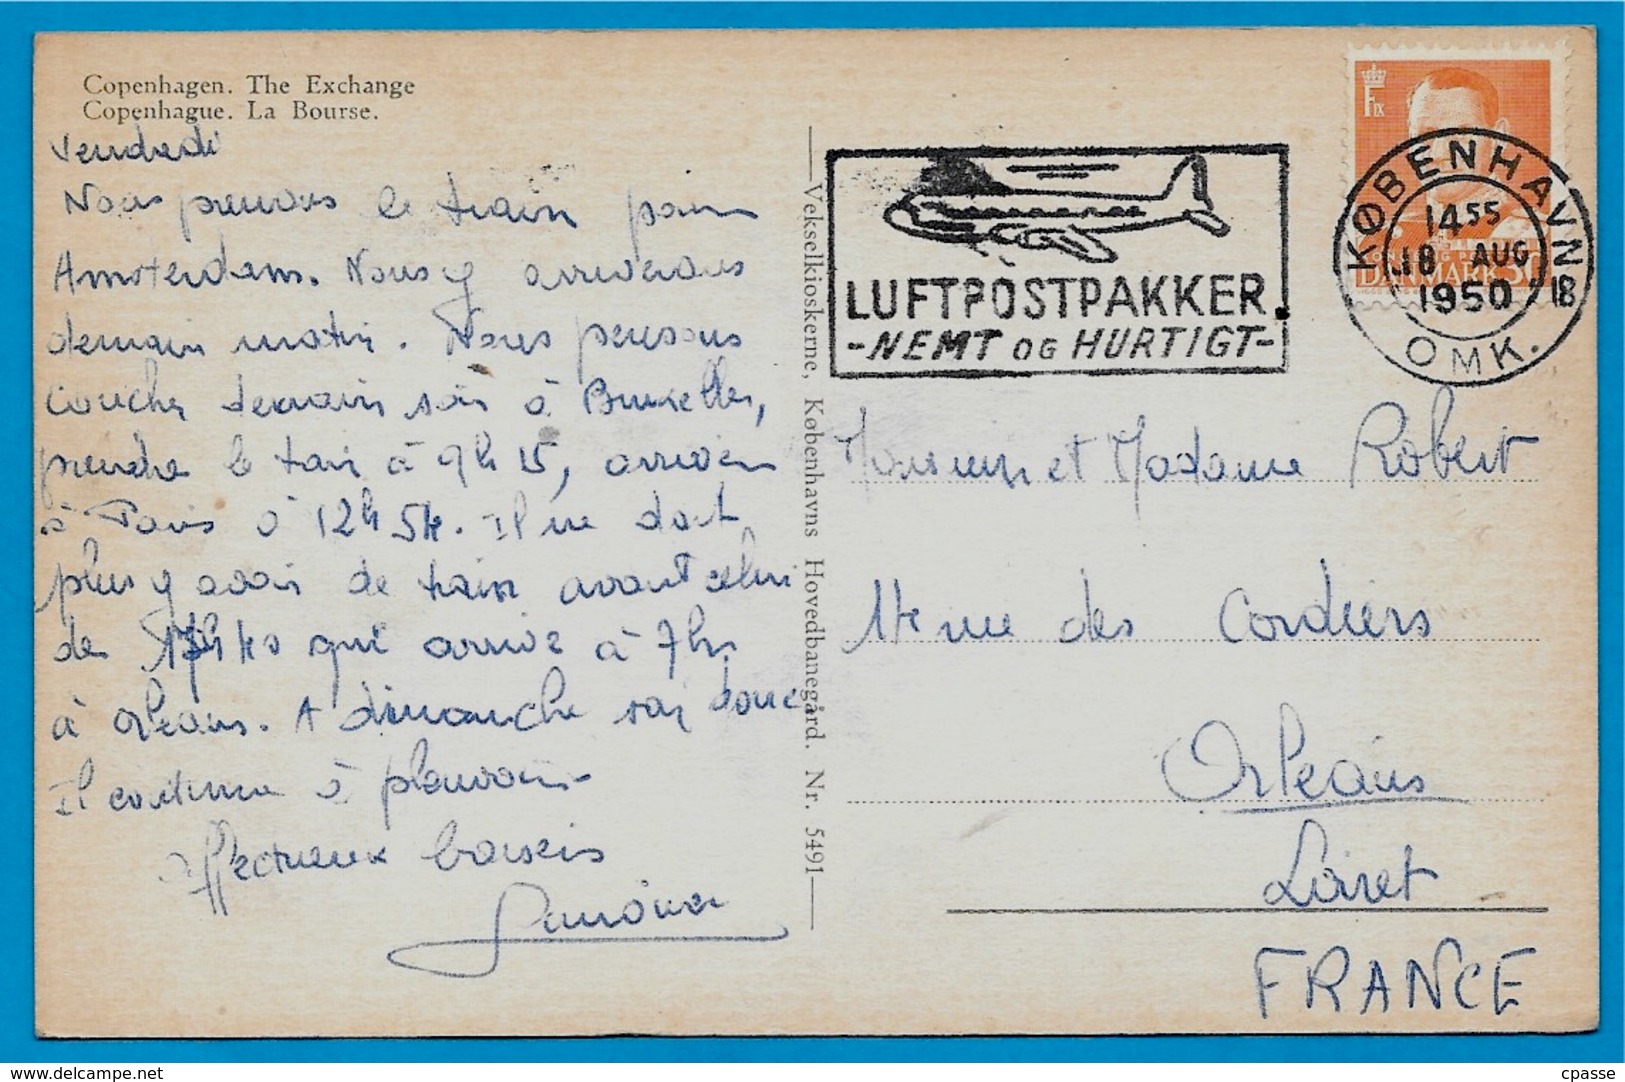 Copenhagen. The Exchange
Copenhague. La Bourse.
Vendredi
Nous prenons le train pour
Amsterdam. Nous y arriverons
demain matin. Nous pensons
coucher demain soir à Bruxelles,
prendre le train à 9h 15, arriver
à Paris à 12h 54. Il ne doit
plus y avoir de train avant celui
de qui arrive à 7hs
à Orléans. A dimanche soir donc
Il continue à pleuvoir
Affectueux baisers
Vekselkioskerne, Københavns Hovedbanegård. Nr. 5491
LUFTPOSTPAKKER.
-NEMT OG HURTIGT-
FIX
DANMARK 30
KØBENHAVN
14 55
18 AUG
1950
18
OMK.
Monsieur et Madame Robert
rue des Cordiers
Orléans
Loiret
FRANCE
https://www.delcampe.net
cpasse